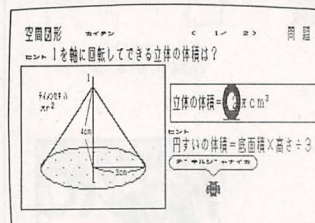 空間図形 カイテン ( 1/ 2) 問題
ヒント lを軸に回転してできる立体の体積は?
l
テイメンセキハ
πr²
4cm
3cm
立体の体積=πcm³
ヒント
円すいの体積=底面積×高さ÷3
デテルジャナイカ